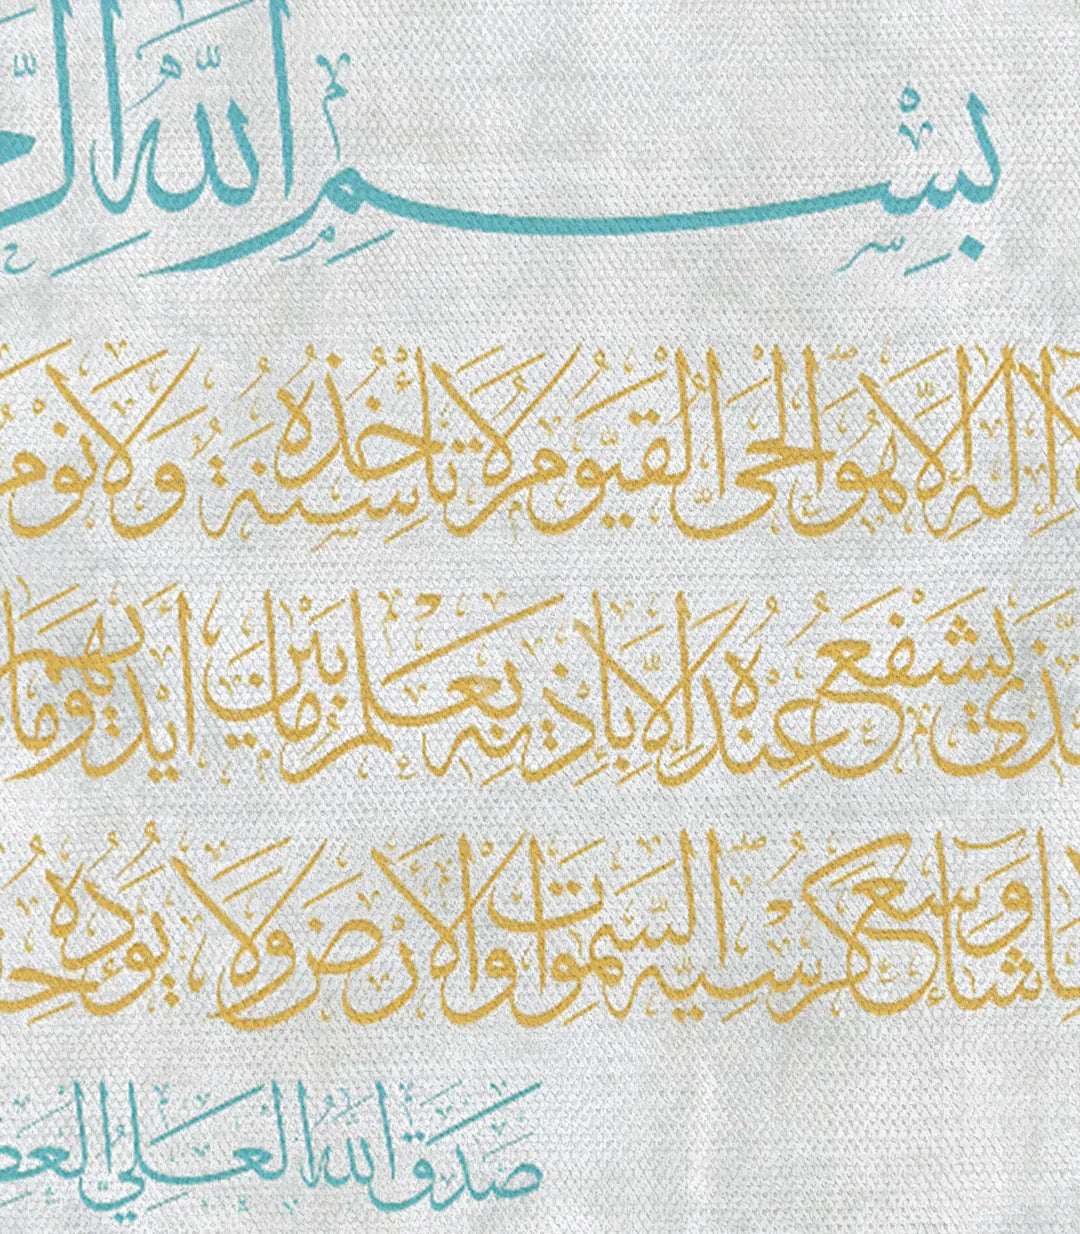 بِسْمِ اللَّهِ
لَا إِلَهَ إِلَّا هُوَ الْحَيُّ الْقَيُّومُ لَا تَأْخُذُهُ سِنَةٌ وَلَا نَوْمٌ
يَشْفَعُ عِنْدَهُ إِلَّا بِإِذْنِهِ يَعْلَمُ مَا بَيْنَ أَيْدِيهِمْ وَمَا
شَاءَ وَسِعَ كُرْسِيُّهُ السَّمَوَاتِ وَالْأَرْضَ وَلَا يَؤُدُهُ
صَدَقَ اللَّهُ الْعَلِيُّ